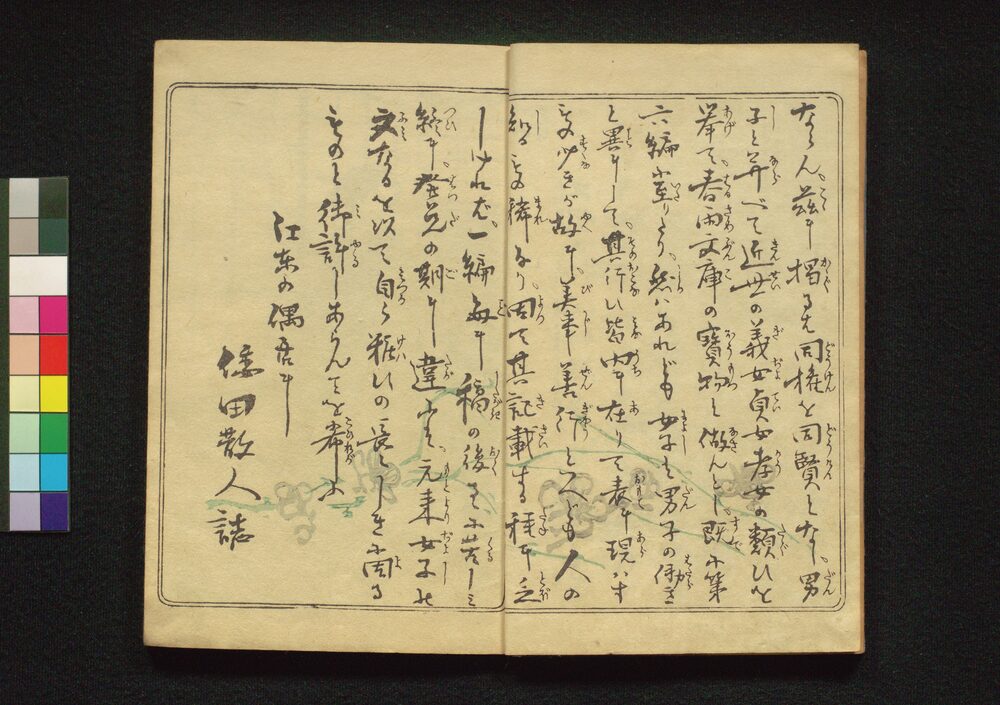 なさん茲に揩るも同権を同賢となし男
子と并べて近世の義女貞女孝女の類ひを
挙て春雨文庫の寶物と做んとし既に第
六編に至りたり然はあれども女子は男子の働き
と異にして其行ひ皆内に在りて表に現はす
事少きが故に美事善行と又ども人の
知る事稀なり因て其記載する種に乏
しければ一編毎に稿の後るるに苦しみ
終に発兌の期に違ふを元来女子の
文なるを以て自ら粧ひの長しきに因る
ものと御許しあらんことを希ふ
江東の偶居に
倭田散人誌